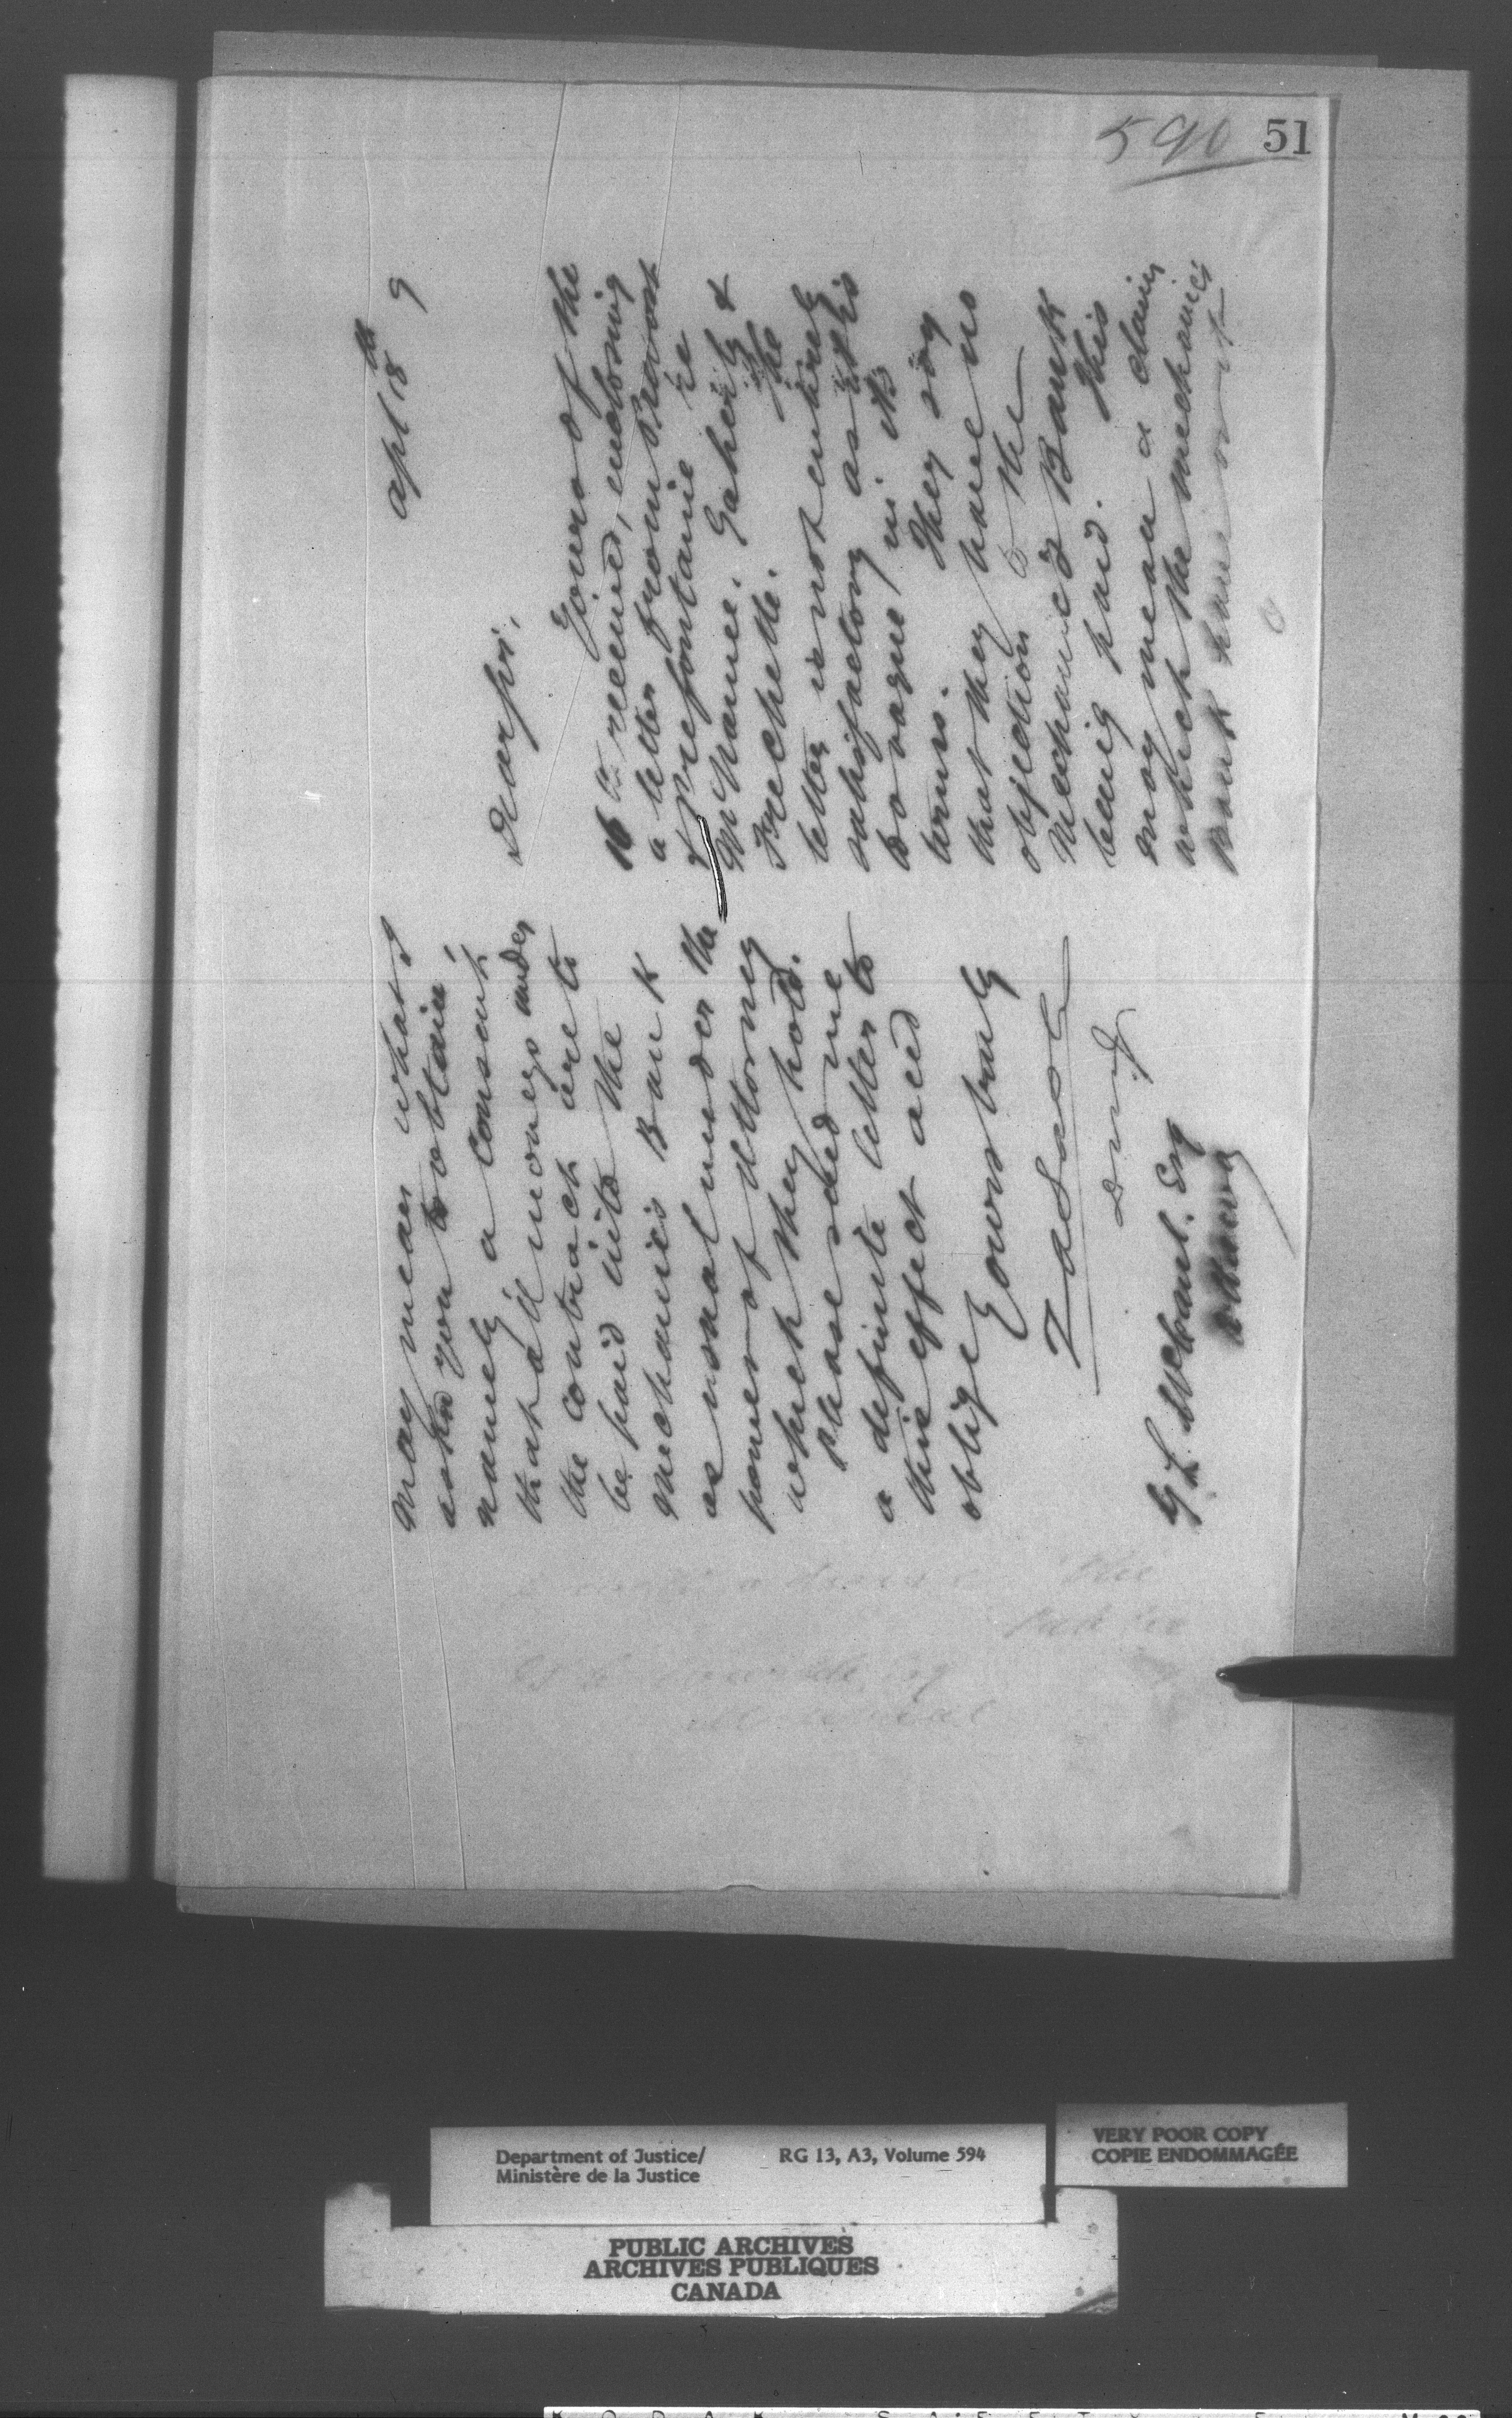 590 51
Apl 18th 9
Dear Sir,
Yours of the
16th received, enclosing
a letter from Prevost
& Prefontaine re
McNamee, Gaherty &
Frechette. The
letter is not entirely
satisfactory as it is
so vague in its
terms. They say
that they have no
objection to the
Mechanic's Bank
being paid. This
may mean a claim
which the Mechanics
Bank have or it
may mean what I
asked you to obtain,
namely a consent
that all moneys under
the contract are to
be paid into the
Mechanics Bank
as usual under the
power of Attorney
which they hold.
Please send me
a definite letter to
this effect and
oblige
Yours truly
Z A Lash
D M J
Esq
Ottawa
Department of Justice/
Ministère de la Justice
RG 13, A3, Volume 594
VERY POOR COPY
COPIE ENDOMMAGÉE
PUBLIC ARCHIVES
ARCHIVES PUBLIQUES
CANADA